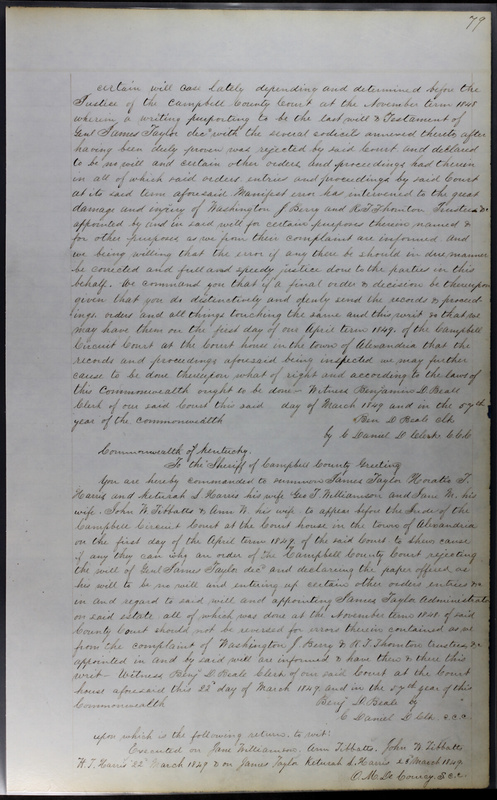 79
certain will case lately depending and determined before the
Justice of the Campbell County Court at the November term 1848
wherein a writing purporting to be the last will & Testament of
Genl James Taylor decd with the several codicils annexed thereto after
having been duly proven was rejected by said Court and declared
to be no will and certain other orders and proceedings had therein
in all of which said orders entries and proceedings by said Court
at its said term aforesaid Manifest error has intervened to the great
damage and injury of Washington J Berry and R. T. Thornton Trustees &c
appointed by and in said will for certain purposes therein named &
for other purposes as we from their complaint are informed and
we being willing that the error if any there be should in due manner
be corrected and full and speedy justice done to the parties in this
behalf. We command you that if a final order & decision be thereupon
given that you do distinctively and openly send the records & proceed-
ings, orders and all things touching the same and this writ & that we
may have them on the first day of our April term 1849, of the Campbell
Circuit Court at the Court house in the town of Alexandria that the
records and proceedings aforesaid being inspected we may further
cause to be done thereupon what of right and according to the laws of
this Commonwealth ought to be done — Witness Benjamin D Beale
Clerk of our said Court this said day of March 1849 and in the 57th
year of the Commonwealth Ben D Beale Clk
by C Daniel D Clerk C.C.C
Commonwealth of Kentucky.
To the Sheriff of Campbell County Greeting
You are hereby commanded to summons James Taylor Horatio T.
Harris and Keturah L Harris his wife Geo T. Williamson and Jane M. his
wife. John W Tibbatts & Ann W. his wife to appear before the Jude of the
Campbell Circuit Court at the Court house in the town of Alexandria
on the first day of the April term 1849, of the said Court to shew cause
if any they can why an order of the Campbell County Court rejecting
the will of Genl James Taylor decd and declaring the paper offered as
his will to be no will and entering up certain other orders entries &c
in and regard to said will and appointing James Taylor Administrator
on said estate all of which was done at the November term 1848 of said
County Court should not be reversed for errors therein contained as we
from the complaint of Washington J Berry & R. T. Thornton trustees &c
appointed in and by said will are informed & have then & there this
writ — Witness Benj D Beale Clerk of our said Court at the Court
house aforesaid this 22d day of March 1849 and in the 57th year of this
Commonwealth Benj. D. Beale by
C Daniel D Clk. C.C.C
upon which is the following return, to wit:
Executed on Jane Williamson. Ann Tibbatts. John W Tibbatts
H. T. Harris 22d March 1849 & on James Taylor Keturah L Harris March 1849.